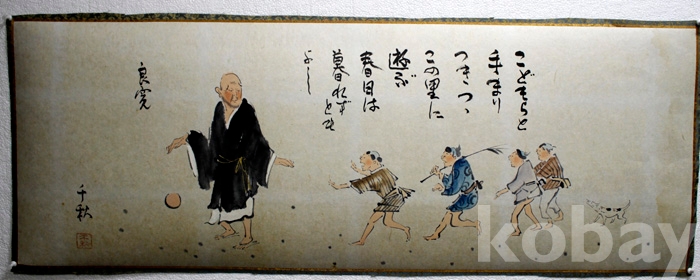 こどもらと
手まり
つきつゝ
この里に
遊ぶ
春日は
暮れず
とも
よし
良寛
千秋
kobay